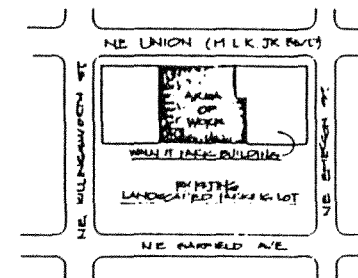 NE UNION (MLK JR BLVD)
NE KILLINGSWORTH ST
AREA
OF
WORK
WALNUT PARK BUILDING
NE
ST
EXISTING
LANDSCAPED PARKING LOT
NE GARFIELD AVE